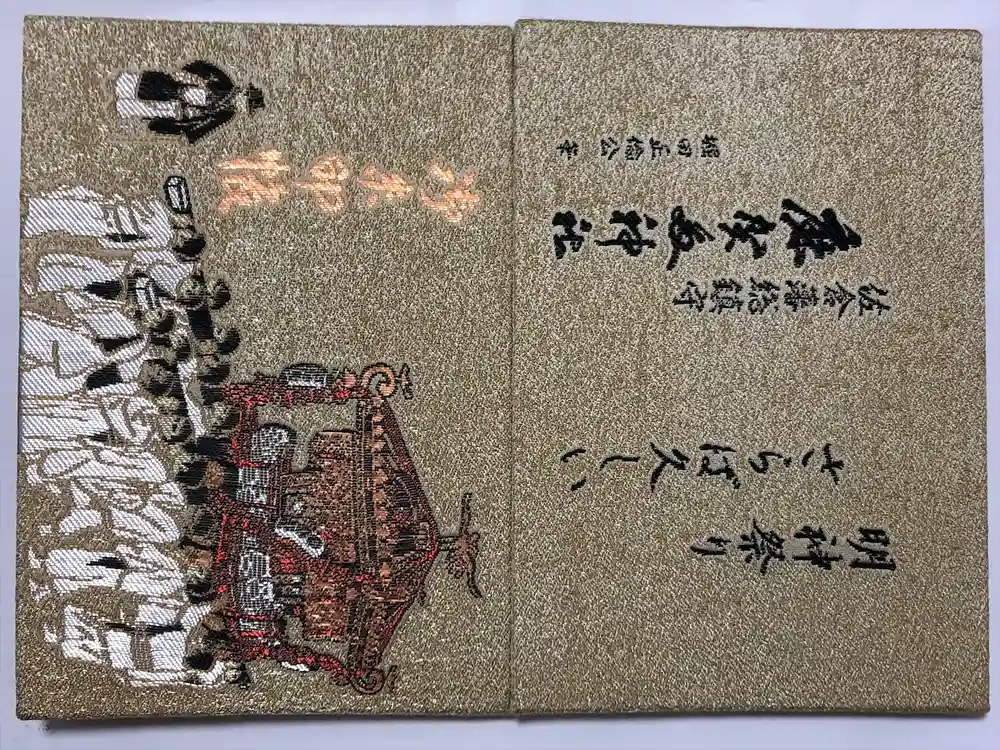 御朱印帳
堀田正倫公筆
麻賀多神社
佐倉藩総鎮守
さらば久しい
明神祭り